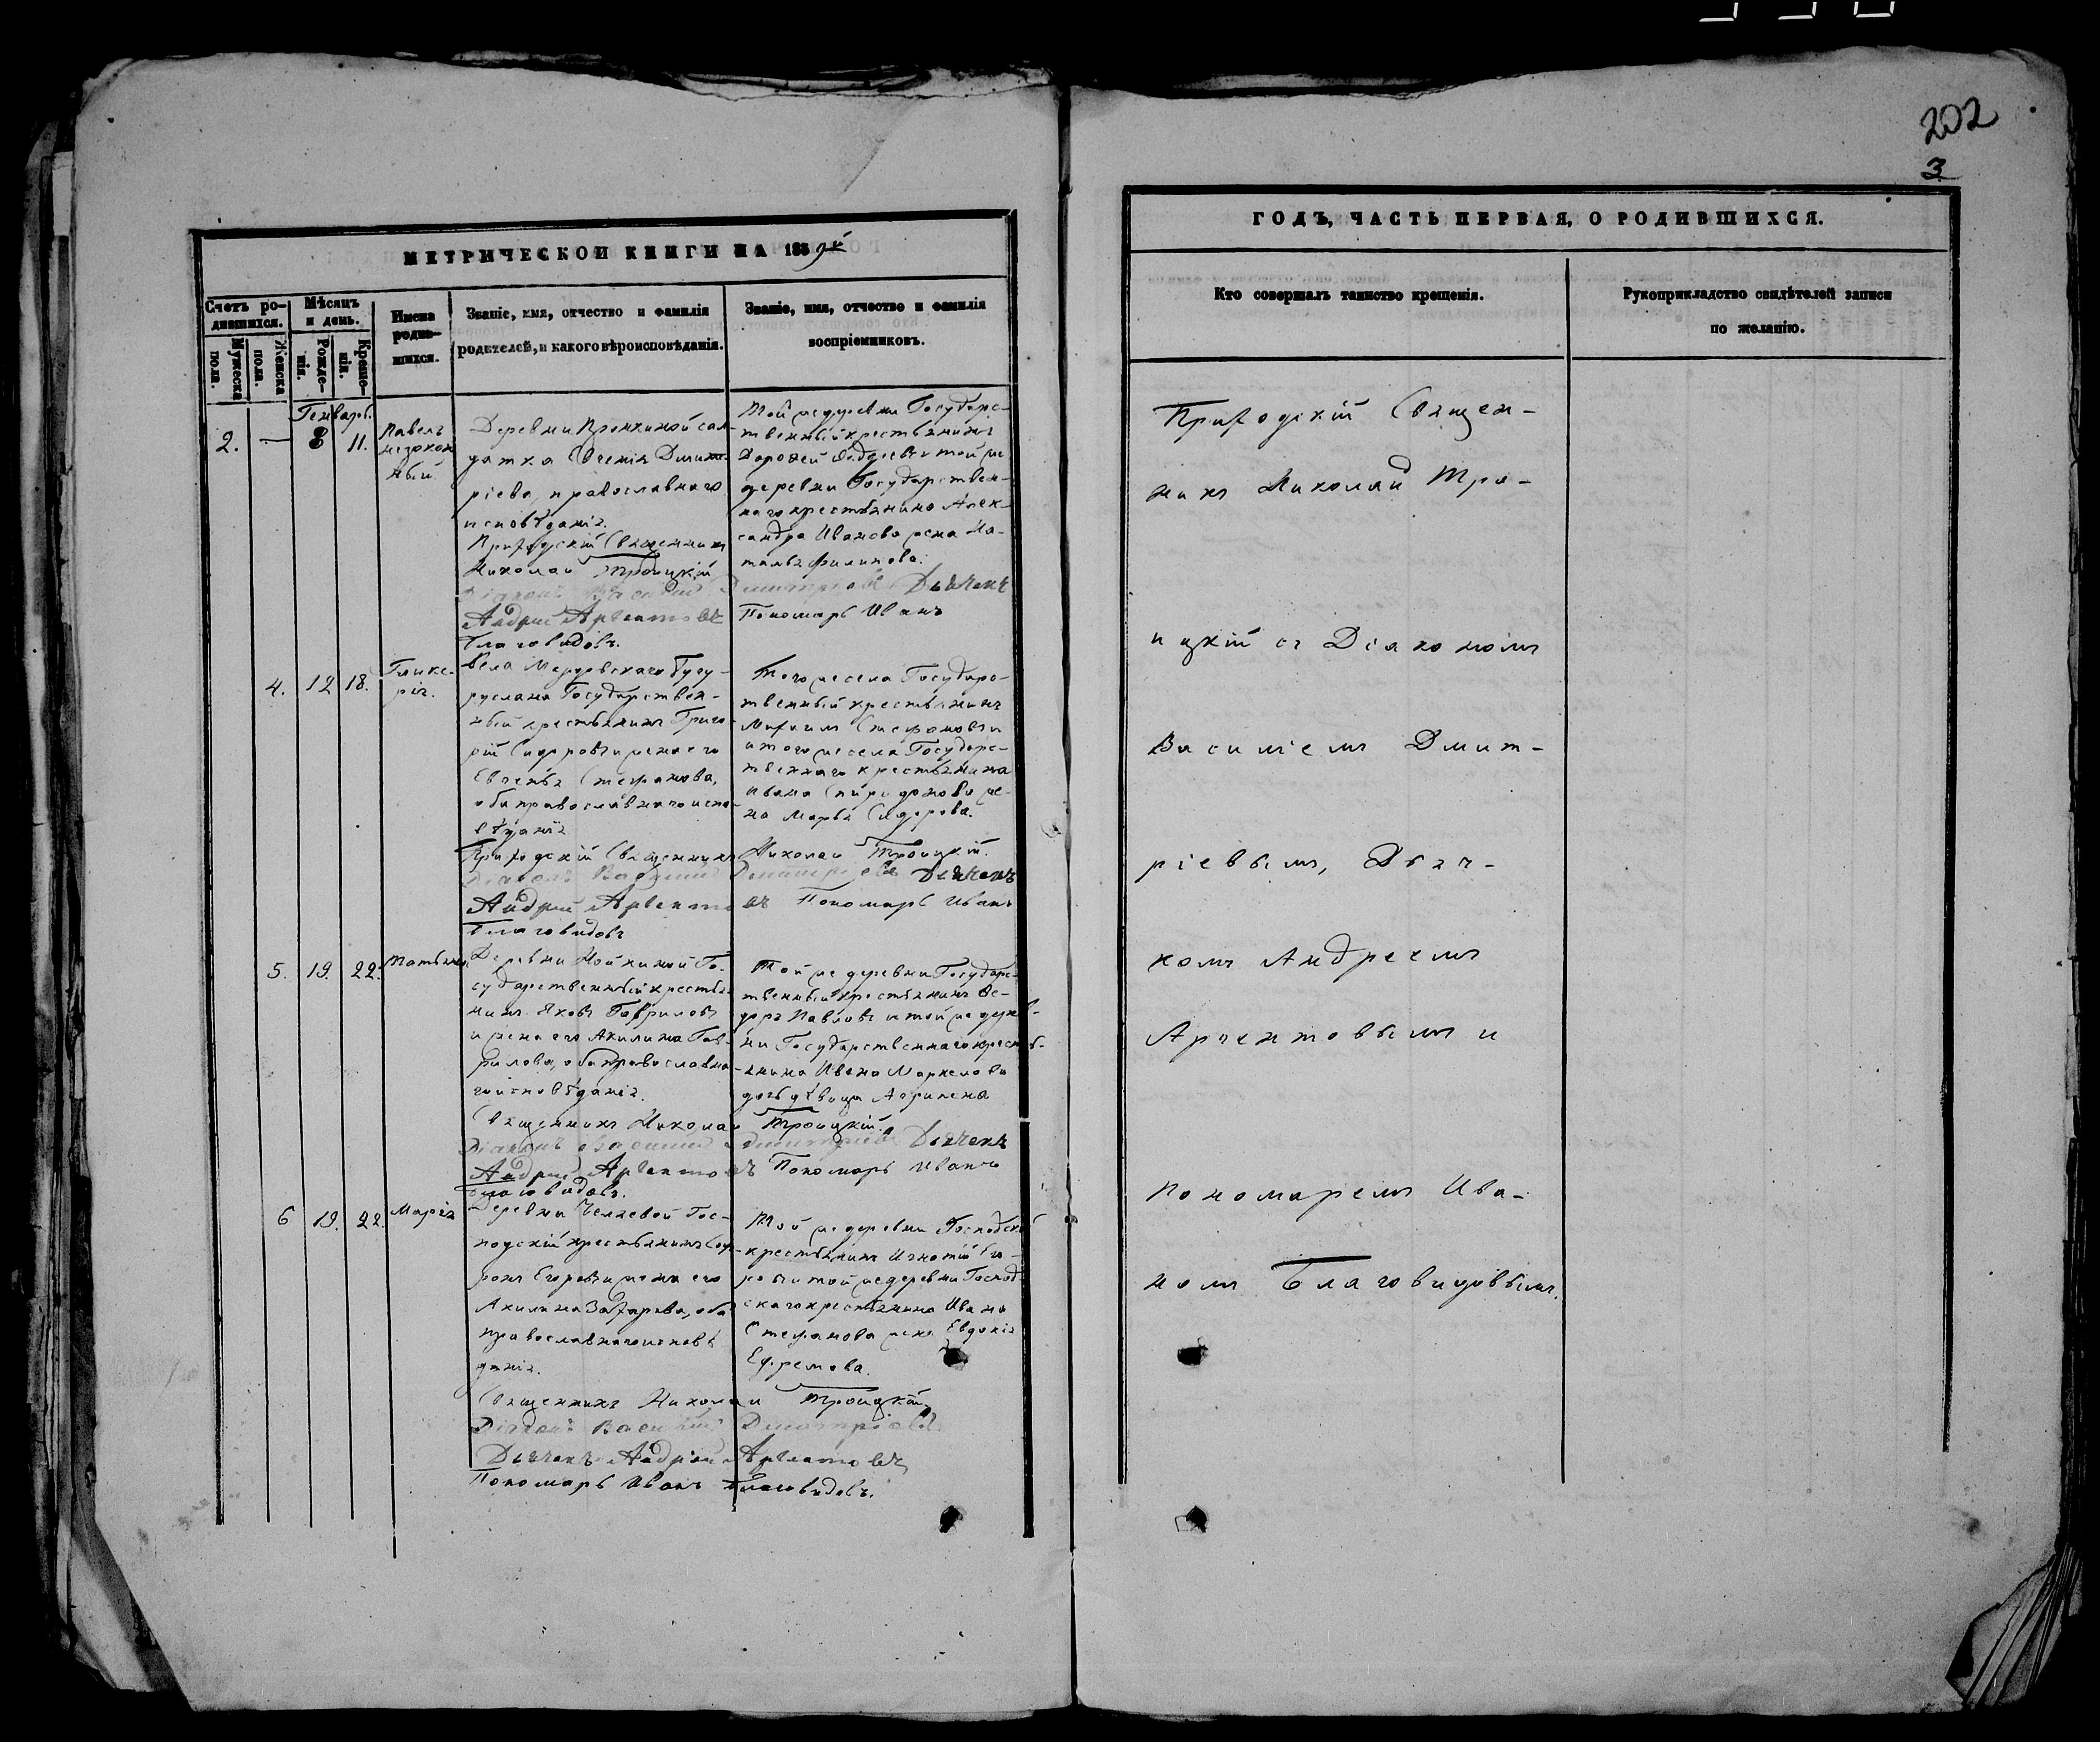 202
3
МЕТРИЧЕСКОЙ КНИГИ НА 1859й
Счетъ ро-
дившихся.
Мужеска
пола.
Женска
пола.
Мѣсяцъ
и день.
Рожде-
нія.
Креще-
нія.
Имена
родив-
шихся.
Званіе, имя, отчество и фамилія
родителей, и какого вѣроисповѣданія.
Званіе, имя, отчество и фамилія
воспріемниковъ.
Генваря.
2.
—
8
11.
Павелъ
незакон
ный
Деревни сол
датка Евгенія Димит
ріева, православнаго
исповѣданія.
Приходскій Священникъ
Николай Троицкій
Діаконъ Василій Димитріевъ Дьячекъ
Андрей Аргентовъ Пономарь Иванъ
Благовидовъ.
Той же деревни Государс-
твенный крестьянинъ
Дорофей и той же
деревни Государствен-
наго крестьянина Алек-
сандра Иванова жена На-
талья Филипова.
4.
12
18.
Глике-
рія.
Села
Государствен-
ный крестьянинъ Григо-
рій и жена его
Евгенія Стефанова,
оба православнаго испо-
вѣданія
Приходскій Священникъ Николай Троицкій.
Діаконъ Василій Димитріевъ Дьячекъ
Андрей Аргентовъ Пономарь Иванъ
Благовидовъ
Того же села Государс-
твенный крестьянинъ
Стефановъ и
того же села Государс-
твеннаго крестьянина
Ивана Спиридонова же-
на Марья Сидорова.
5.
19.
22.
Татьяна
Деревни Го-
сударственный крестья-
нинъ Яковъ Гавриловъ
и жена его Акилина Гав-
рилова, оба православна-
го исповѣданія.
Священникъ Николай Троицкій.
Діаконъ Василій Димитріевъ Дьячекъ
Андрей Аргентовъ Пономарь Иванъ
Благовидовъ.
Той же деревни Государс-
твенный крестьянинъ Ѳе-
доръ Павловъ и той же дерев-
ни Государственнаго кресть-
янина Ивана Маркелова
дочь дѣвица Агрипена
6
19.
22.
Марія
Деревни Гос-
подскій крестьянинъ Соф-
ронъ Егоровъ и жена его
Акилина Захарова, оба
православнаго исповѣ
данія.
Священникъ Николай Троицкій.
Діаконъ Василій Димитріевъ
Дьячекъ Андрей Аргентовъ
Пономарь Иванъ Благовидовъ.
Той же деревни Господскій
крестьянинъ Игнатій
и той же деревни Господ
скаго крестьянина Ивана
Стефанова жена Евдокія
Ефремова.
ГОДЪ, ЧАСТЬ ПЕРВАЯ, О РОДИВШИХСЯ.
Кто совершалъ таинство крещенія.
Рукоприкладство свидѣтелей записи
по желанію.
Приходскій Священ-
никъ Николай Тро-
ицкій съ Діакономъ
Василіемъ Димит-
ріевымъ, Дьяч-
комъ Андреемъ
Аргентовымъ и
Пономаремъ Ива-
номъ Благовидовымъ.